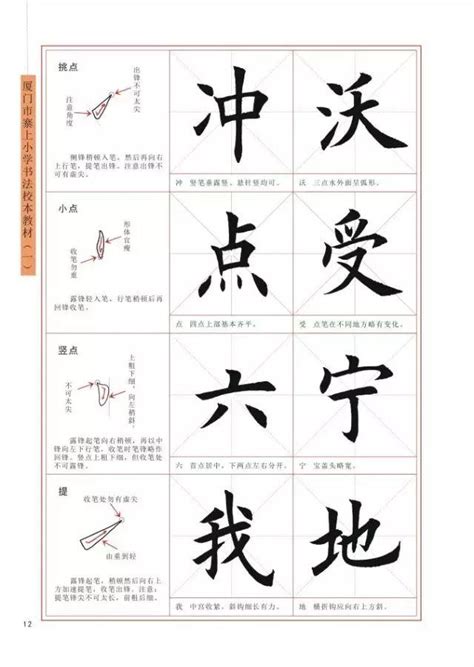 厦门市寨上小学书法校本教材(一)
挑点
出锋不可太尖
注意角度
侧锋稍顿入笔,然后再向右
上行笔,提笔出锋。注意出锋不
可有虚尖。
冲
冲 竖笔垂露竖、悬针竖均可。
沃
沃 三点水外面呈弧形。
小点
形体宜瘦
收笔勿重
露锋轻入笔,行笔稍顿后再
回锋收笔。
点
点 四点上部基本齐平。
受
受 点笔在不同地方略有变化。
竖点
上粗下细,向左稍斜。
不可太尖
露锋起笔向右稍顿,再以中
锋向左下行笔,收笔时笔锋略作
回锋。竖点上粗下细,但收笔处
不可露锋。
六
六 首点居中,下两点左右分开。
宁
宁 宝盖头略宽。
提
收笔处勿有虚尖
由重到轻
露锋起笔,稍顿然后向右上
方加速提笔,收笔出锋。注意:
提笔锋尖不可太长,前粗后细。
我
我 中宫收紧,斜钩细长有力。
地
地 横折钩应向右上方斜。
12